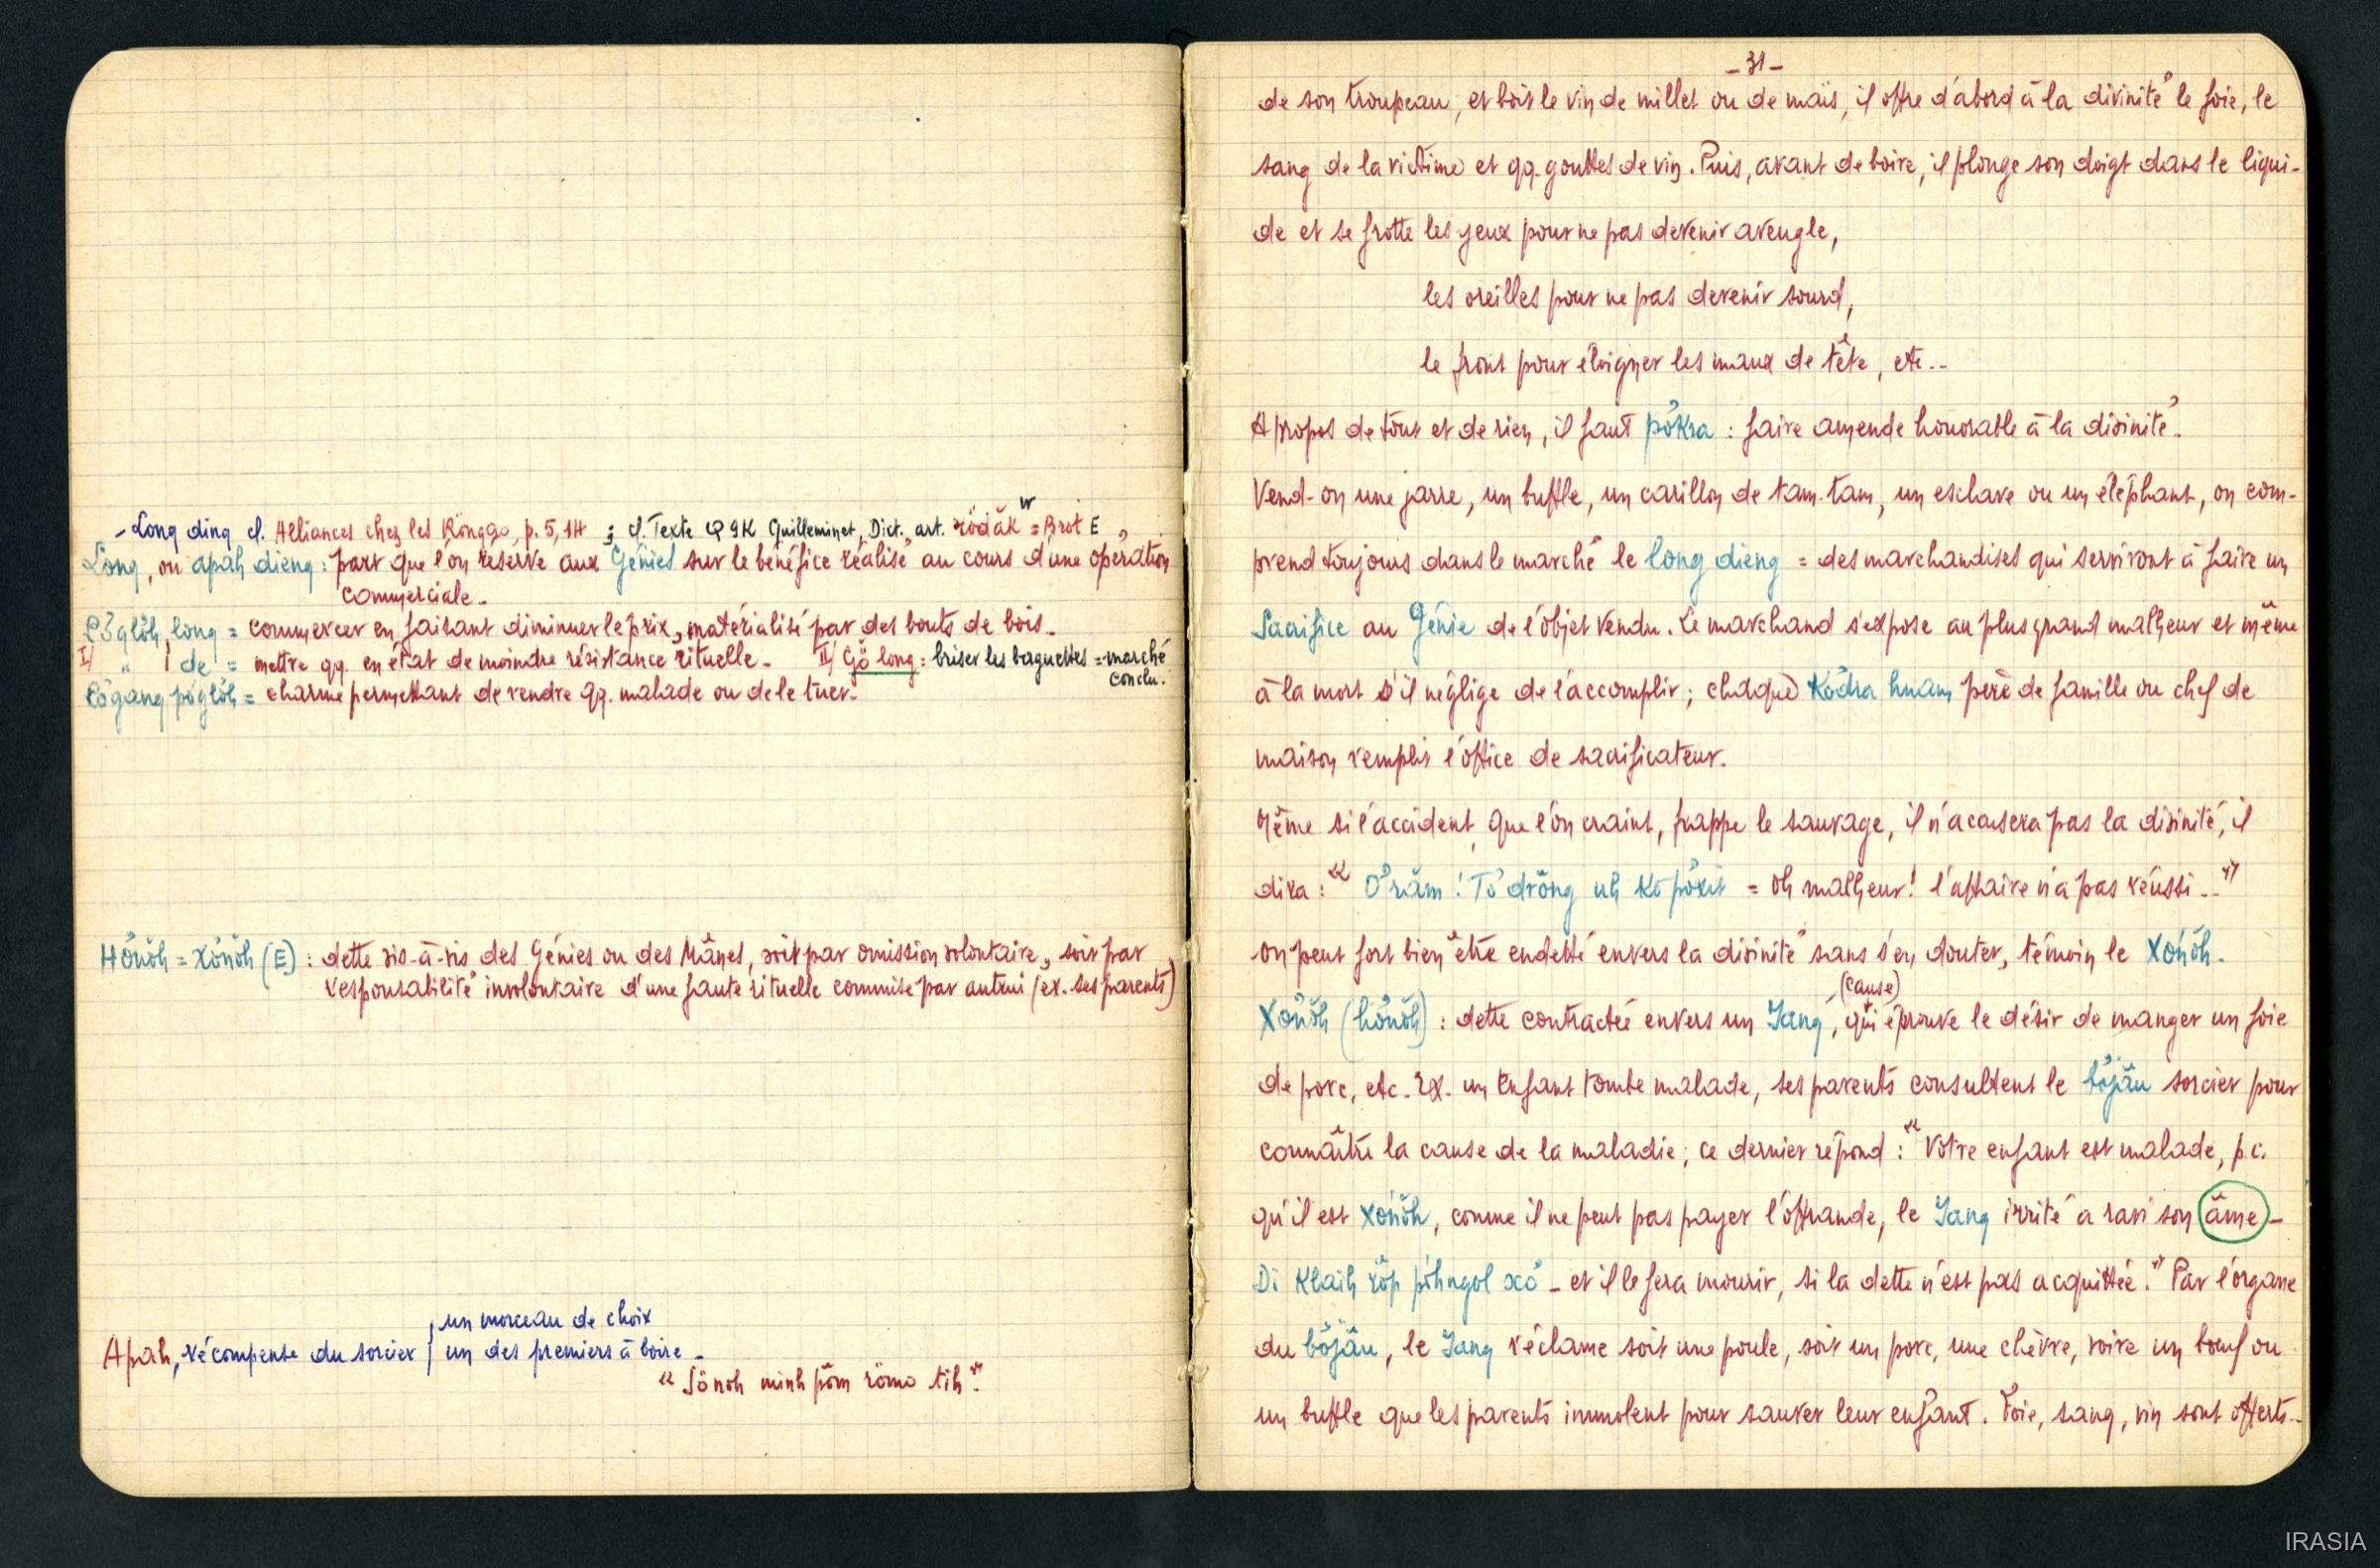 - Long ding cf. Alliances chez les Rongao, p. 5, 14 ; cf. Texte Q 9K Guilleminet, Dict., art. rödăk = Brot E
Long, ou apah dieng : part que l'on réserve aux Génies sur le bénéfice réalisé au cours d'une opération
commerciale.
Pơglŏh long = commercer en faisant diminuer le prix, matérialisé par des bouts de bois.
I/ " i de = mettre qq. en état de moindre résistance rituelle. II/ Gŏ long : briser les baguettes = marché
conclu.
Pơgang pơglŏh = charme permettant de rendre qq. malade ou de le tuer.
Hơnŏh = xơnŏh (E) : dette vis-à-vis des Génies ou des Mânes, soit par omission volontaire, soit par
responsabilité involontaire d'une faute rituelle commise par autrui (ex. ses parents)
un morceau de choix
Apah, récompense du sorcier un des premiers à boire -
minh tih".
- 31 -
de son troupeau, et boit le vin de millet ou de maïs, il offre d'abord à la divinité le foie, le
sang de la victime et qq. gouttes de vin. Puis, avant de boire, il plonge son doigt dans le liqui-
de et se frotte les yeux pour ne pas devenir aveugle,
les oreilles pour ne pas devenir sourd,
le front pour éloigner les maux de tête, etc..
A propos de tout et de rien, il faut pơkra : faire amende honorable à la divinité.
Vend-on une jarre, un buffle, un carillon de tam-tam, un esclave ou un éléphant, on com-
prend toujours dans le marché le long dieng = des marchandises qui serviront à faire un
Sacrifice au Génie de l'objet vendu. Le marchand s'expose au plus grand malheur et même
à la mort s'il néglige de l'accomplir ; chaque Kơdra hnam père de famille ou chef de
maison remplit l'office de sacrificateur.
Même si l'accident, que l'on craint, frappe le sauvage, il n'accusera pas la divinité, il
dira : " Ơ răm ! Tơdrŏng uh kơ pơxit = oh malheur ! l'affaire n'a pas réussi.."
on peut fort bien être endetté envers la divinité sans s'en douter, témoin le xơnŏh.
(cause)
Xơnŏh (hơnŏh) : dette contractée envers un Yang, qui éprouve le désir de manger un foie
de porc, etc. Ex. un Enfant tombe malade, ses parents consultent le bơjâu sorcier pour
connaître la cause de la maladie ; ce dernier répond : " Votre enfant est malade, p.c.
qu'il est xơnŏh, comme il ne peut pas payer l'offrande, le Yang irrité a ravi son âme -
Di klaih rŏp pơhngol xơ - et il le fera mourir, si la dette n'est pas acquittée." Par l'organe
du bơjâu, le Yang réclame soit une poule, soit un porc, une chèvre, voire un bœuf ou
un buffle que les parents immolent pour sauver leur enfant. Foie, sang, vin sont offerts..
IRASIA